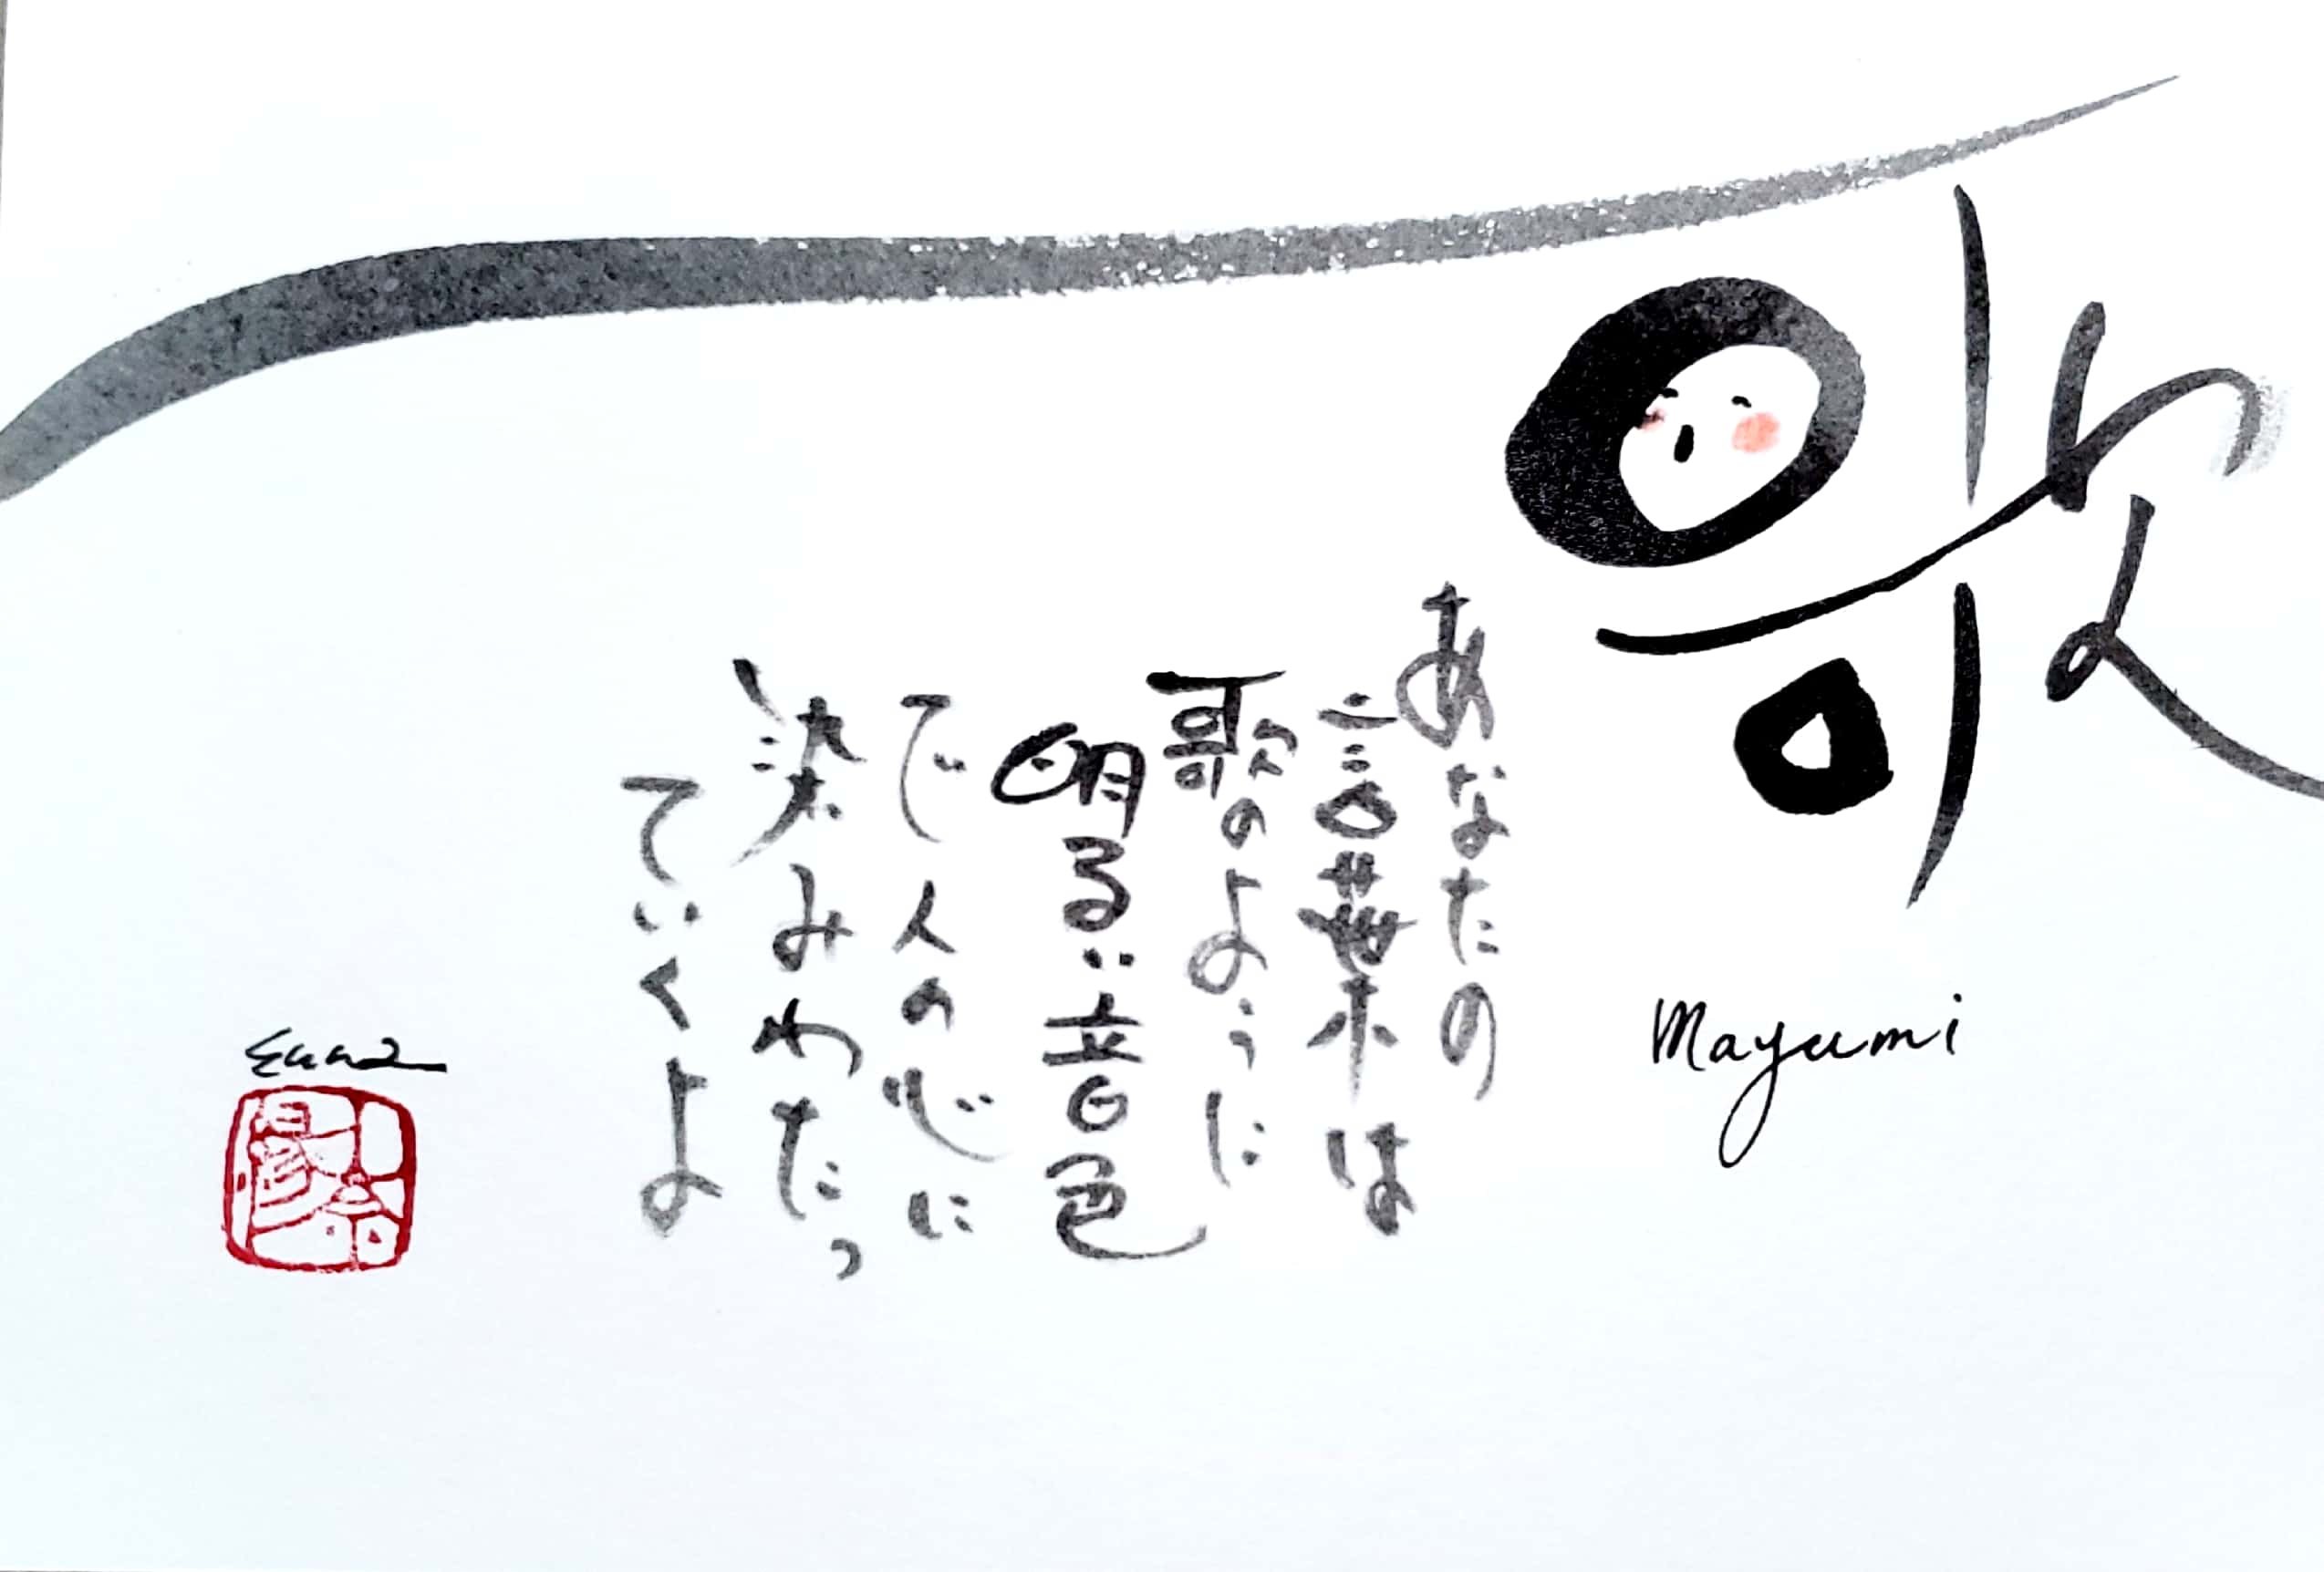 歌
Mayumi
あなたの
言葉は
歌のように
明るい音色
で人の心に
染みわたっ
ていくよ